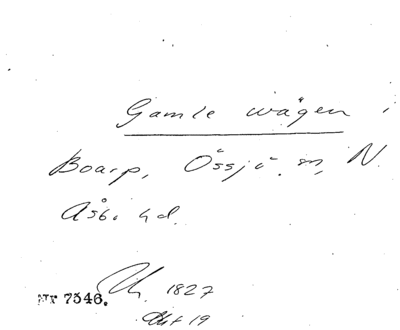 Gamle wägen i
Boarp, Össjö sn, N.
Åsb. hd.
Nr 7546.
1827
Akt 19